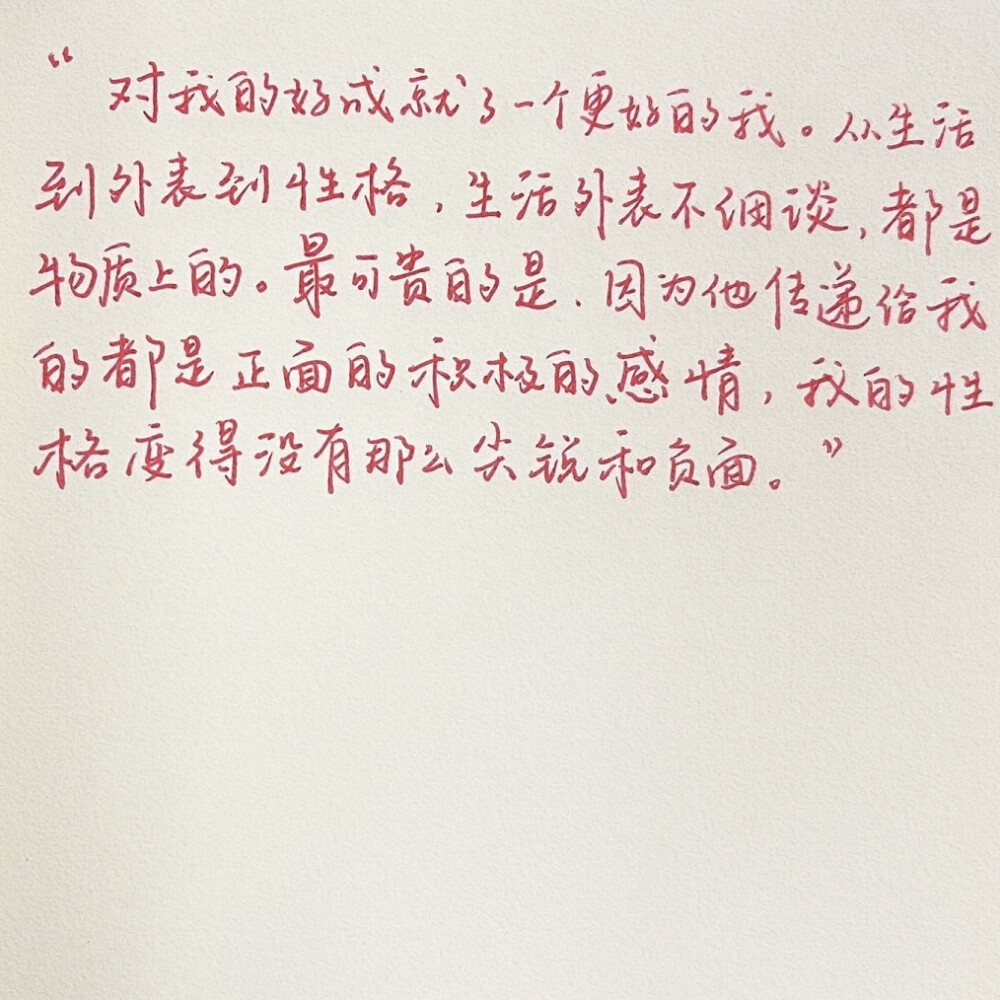 “对我的好成就了一个更好的我。从生活
到外表到性格，生活外表不细谈，都是
物质上的。最可贵的是、因为他传递给我
的都是正面的积极的感情，我的性
格变得没有那么尖锐和负面。”